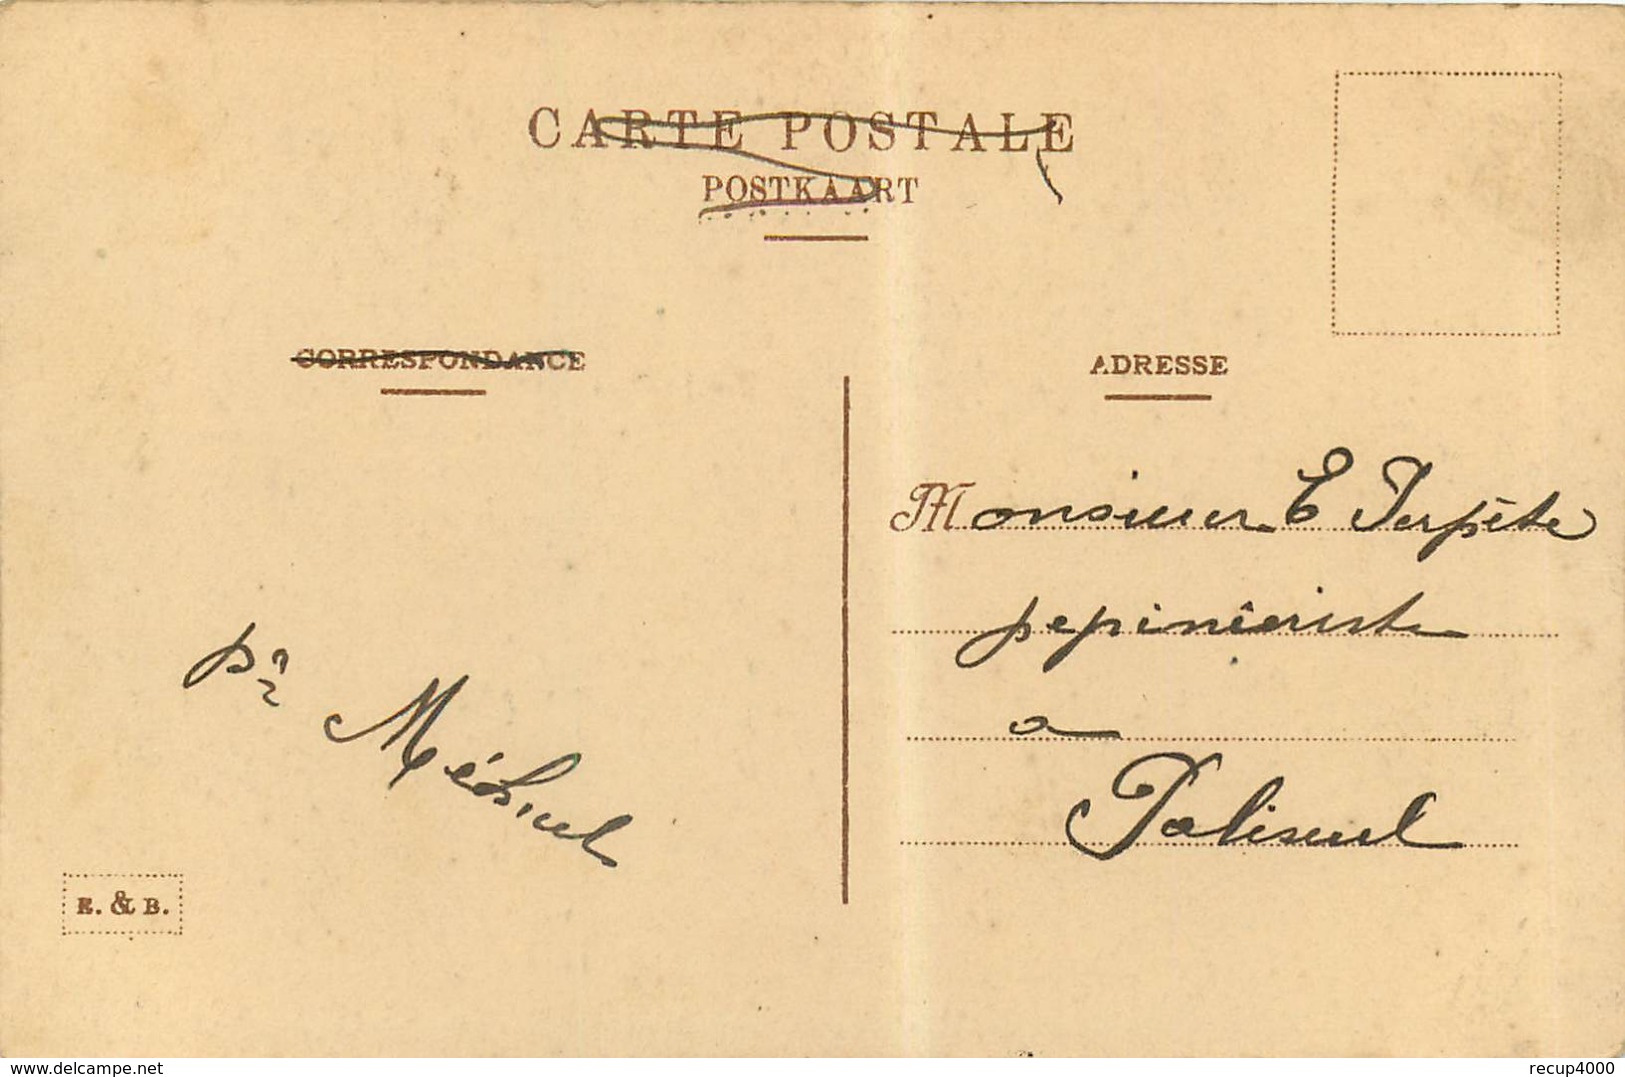 CARTE POSTALE
POSTKAART
CORRESPONDANCE
ADRESSE
Monsieur E Perpète
pepiniêriste
a
Paliseul
pr
E. & B.
delcampe.net
recup4000